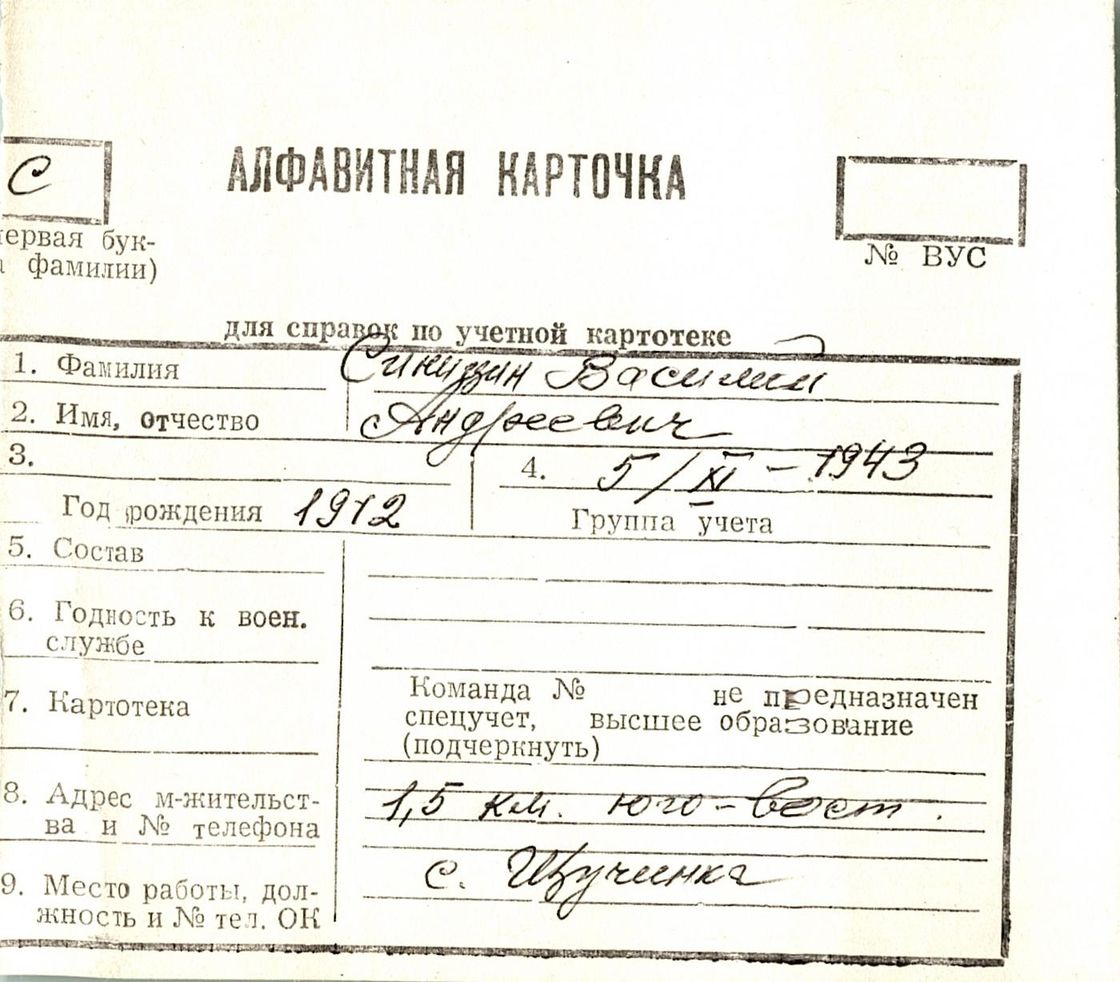 С
АЛФАВИТНАЯ КАРТОЧКА
ервая бук-
фамилии)
№ ВУС
для справок по учетной картотеке
1. Фамилия
Василий
2. Имя, отчество
Андреевич
3.
4. 5/XI - 1943
Год рождения 1912
Группа учета
5. Состав
6. Годность к воен.
службе
7. Картотека
Команда № не предназначен
спецучет, высшее образование
(подчеркнуть)
8. Адрес м-жительст-
ва и № телефона
1,5 км. юго-вост.
с. Щучинка
9. Место работы, дол-
жность и № тел. ОК